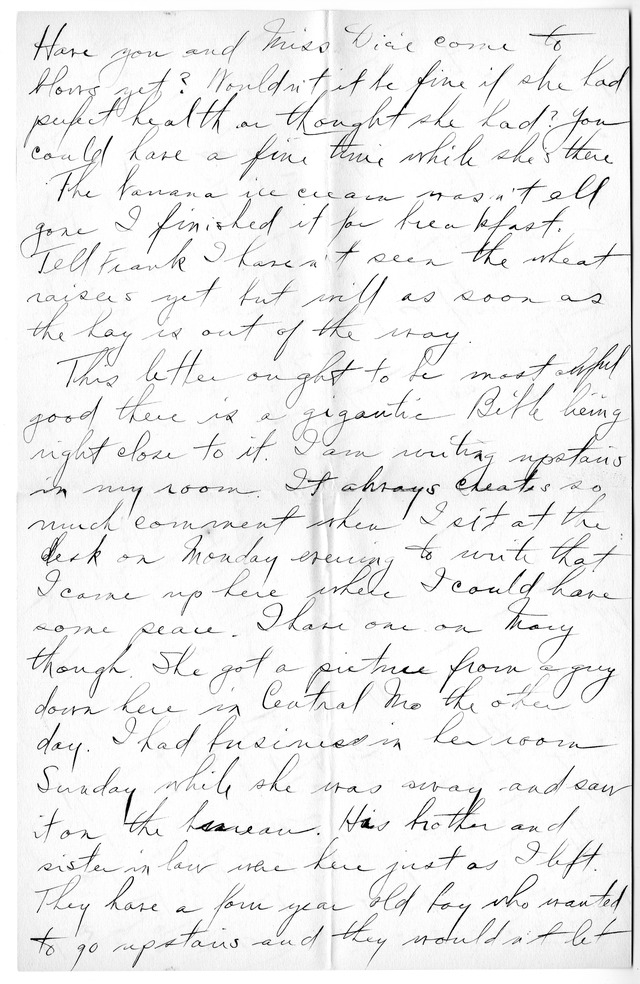 Have you and Miss Dicie come to
blows yet? Wouldn't it be fine if she had
perfect health or thought she had? You
could have a fine time while she's there
The banana ice cream wasn't all
gone I finished it for breakfast.
Tell Frank I haven't seen the wheat
raisers yet but will as soon as
the hay is out of the way.
This letter ought to be most awful
good there is a gigantic Bible being
right close to it. I am writing upstairs
in my room. It always creates so
much comment when I sit at the
desk on Monday evening to write that
I came up here where I could have
some peace. I have one on Mary
though. She got a picture from a guy
down here in Central Mo the other
day. I had business in her room
Sunday while she was away and saw
it on the bureau. His brother and
sister in law were here just as I left.
They have a four year old boy who wanted
to go upstairs and they wouldn't let